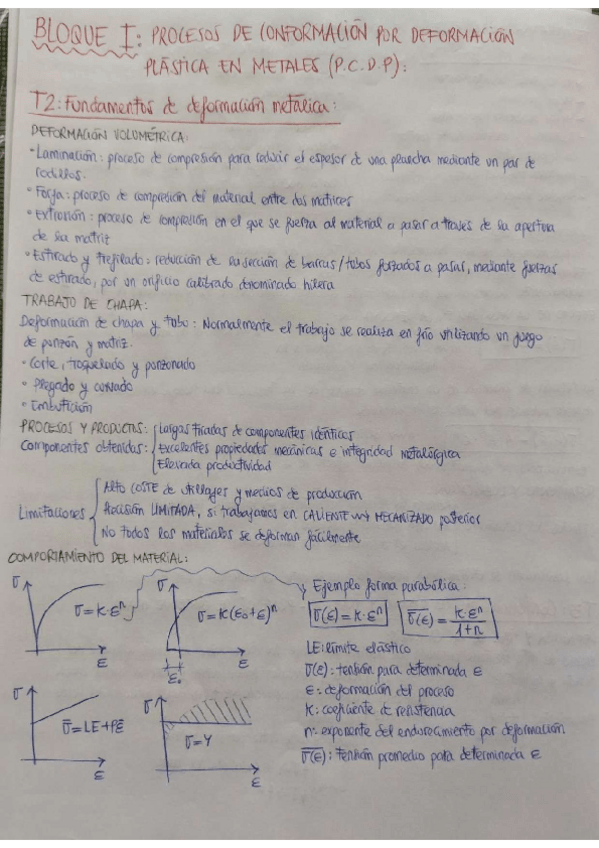 BLOQUE I: PROCESOS DE CONFORMACIÓN POR DEFORMACIÓN
PLÁSTICA EN METALES (P.C.D.P):
T2: Fundamentos de deformación metálica:
DEFORMACIÓN VOLUMÉTRICA:
· Laminación: proceso de compresión para reducir el espesor de una plancha mediante un par de
rodillos.
· Forja: proceso de compresión del material entre dos matrices
· Extrusión: proceso de compresión en el que se fuerza al material a pasar a través de su apertura
de su matriz
· Estirado y trefilado: reducción de su sección de barras/tubos forzados a pasar, mediante fuerzas
de estirado, por un orificio calibrado denominado hilera
TRABAJO DE CHAPA:
Deformación de chapa y tubo: Normalmente el trabajo se realiza en frío utilizando un juego
de punzón y matriz.
· Corte, troquelado y punzonado
· Plegado y curvado
· Embutición
PROCESOS Y PRODUCTOS: Largas tiradas de componentes idénticos
Componentes obtenidos: Excelentes propiedades mecánicas e integridad metalúrgica
Elevada productividad
Limitaciones
Alto COSTE de utillajes y medios de producción
Precisión LIMITADA, si trabajamos en CALIENTE → MECANIZADO posterior
No todos los materiales se deforman fácilmente
COMPORTAMIENTO DEL MATERIAL:
σ σ=K·εⁿ ε
σ σ=K(ε₀+ε)ⁿ ε ε₀
Ejemplo forma parabólica:
σ(ε)=K·εⁿ σ̅(ε)=K·εⁿ/1+n
LE: límite elástico
σ(ε): tensión para determinada ε
ε: deformación del proceso
K: coeficiente de resistencia
n: exponente del endurecimiento por deformación
σ̅(ε): tensión promedio para determinada ε
σ σ̅=LE+Pε̅ ε
σ σ=Y ε